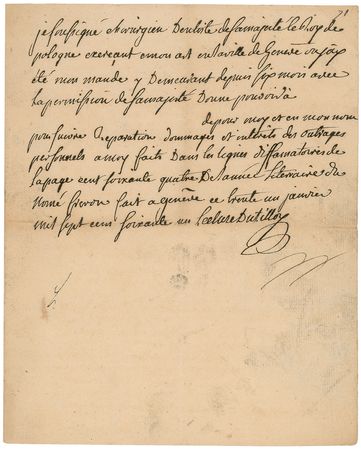 71
je soussigné chirurgien Dentiste de sa majesté le Roy de
pologne exerçant mon art en la ville de Genève ou jay
été mon mande y Demeurant depuis six mois avec
la permission de sa majesté Donne pouvoir à
depour moy et en mon nom
poursuivre reparation dommages et interêts des outrages
personnels a moy faits Dans les lignes diffamatoires de
la page cent soixante quatre De l'année Litteraire du
nomé freron fait a genêve ce trente un janvier
mil sept cent soixante un Leclure Dutilloy